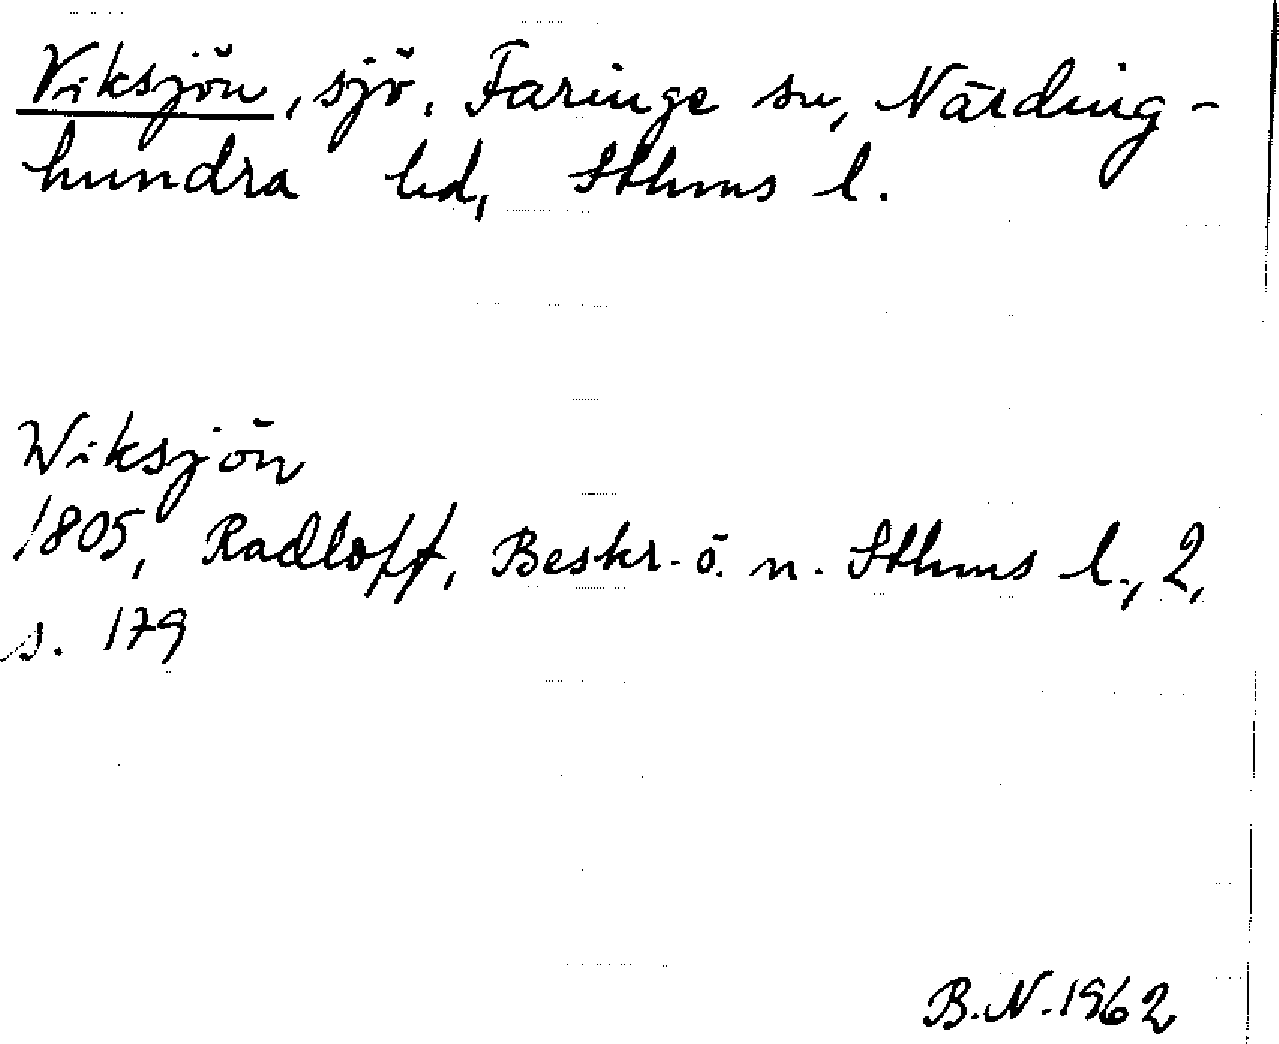 Viksjön, sjö, Faringe sn, Närding-
hundra hd, Sthms l.
Wiksjön
1805, Radloff, Beskr. ö. n. Sthms l., 2,
s. 179
B.N. 1962